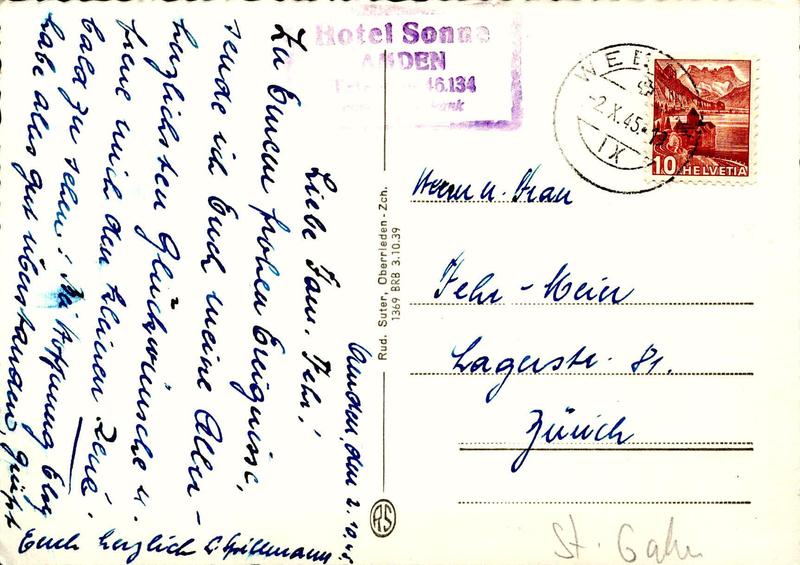 Hotel Sonne
AMDEN
46.134
WEE
-2.X.45-17
IX
10 HELVETIA
Amden, den 2.10.45.
Liebe Fam. Fehr!
Zu Eurem frohen Ereignisse,
sende ich Euch meine Aller-
herzlichsten Glückwünsche u.
freue mich den kleinen René,
bald zu sehen! In Hoffnung Elsy
habe alles gut überstanden, grüsst
Euch herzlich
Herrn u. Frau
Fehr-Meier
Lagerstr. 81.
Zürich
Rud. Suter, Oberrieden-Zch.
1369 BRB 3.10.39
RS
St. Galn